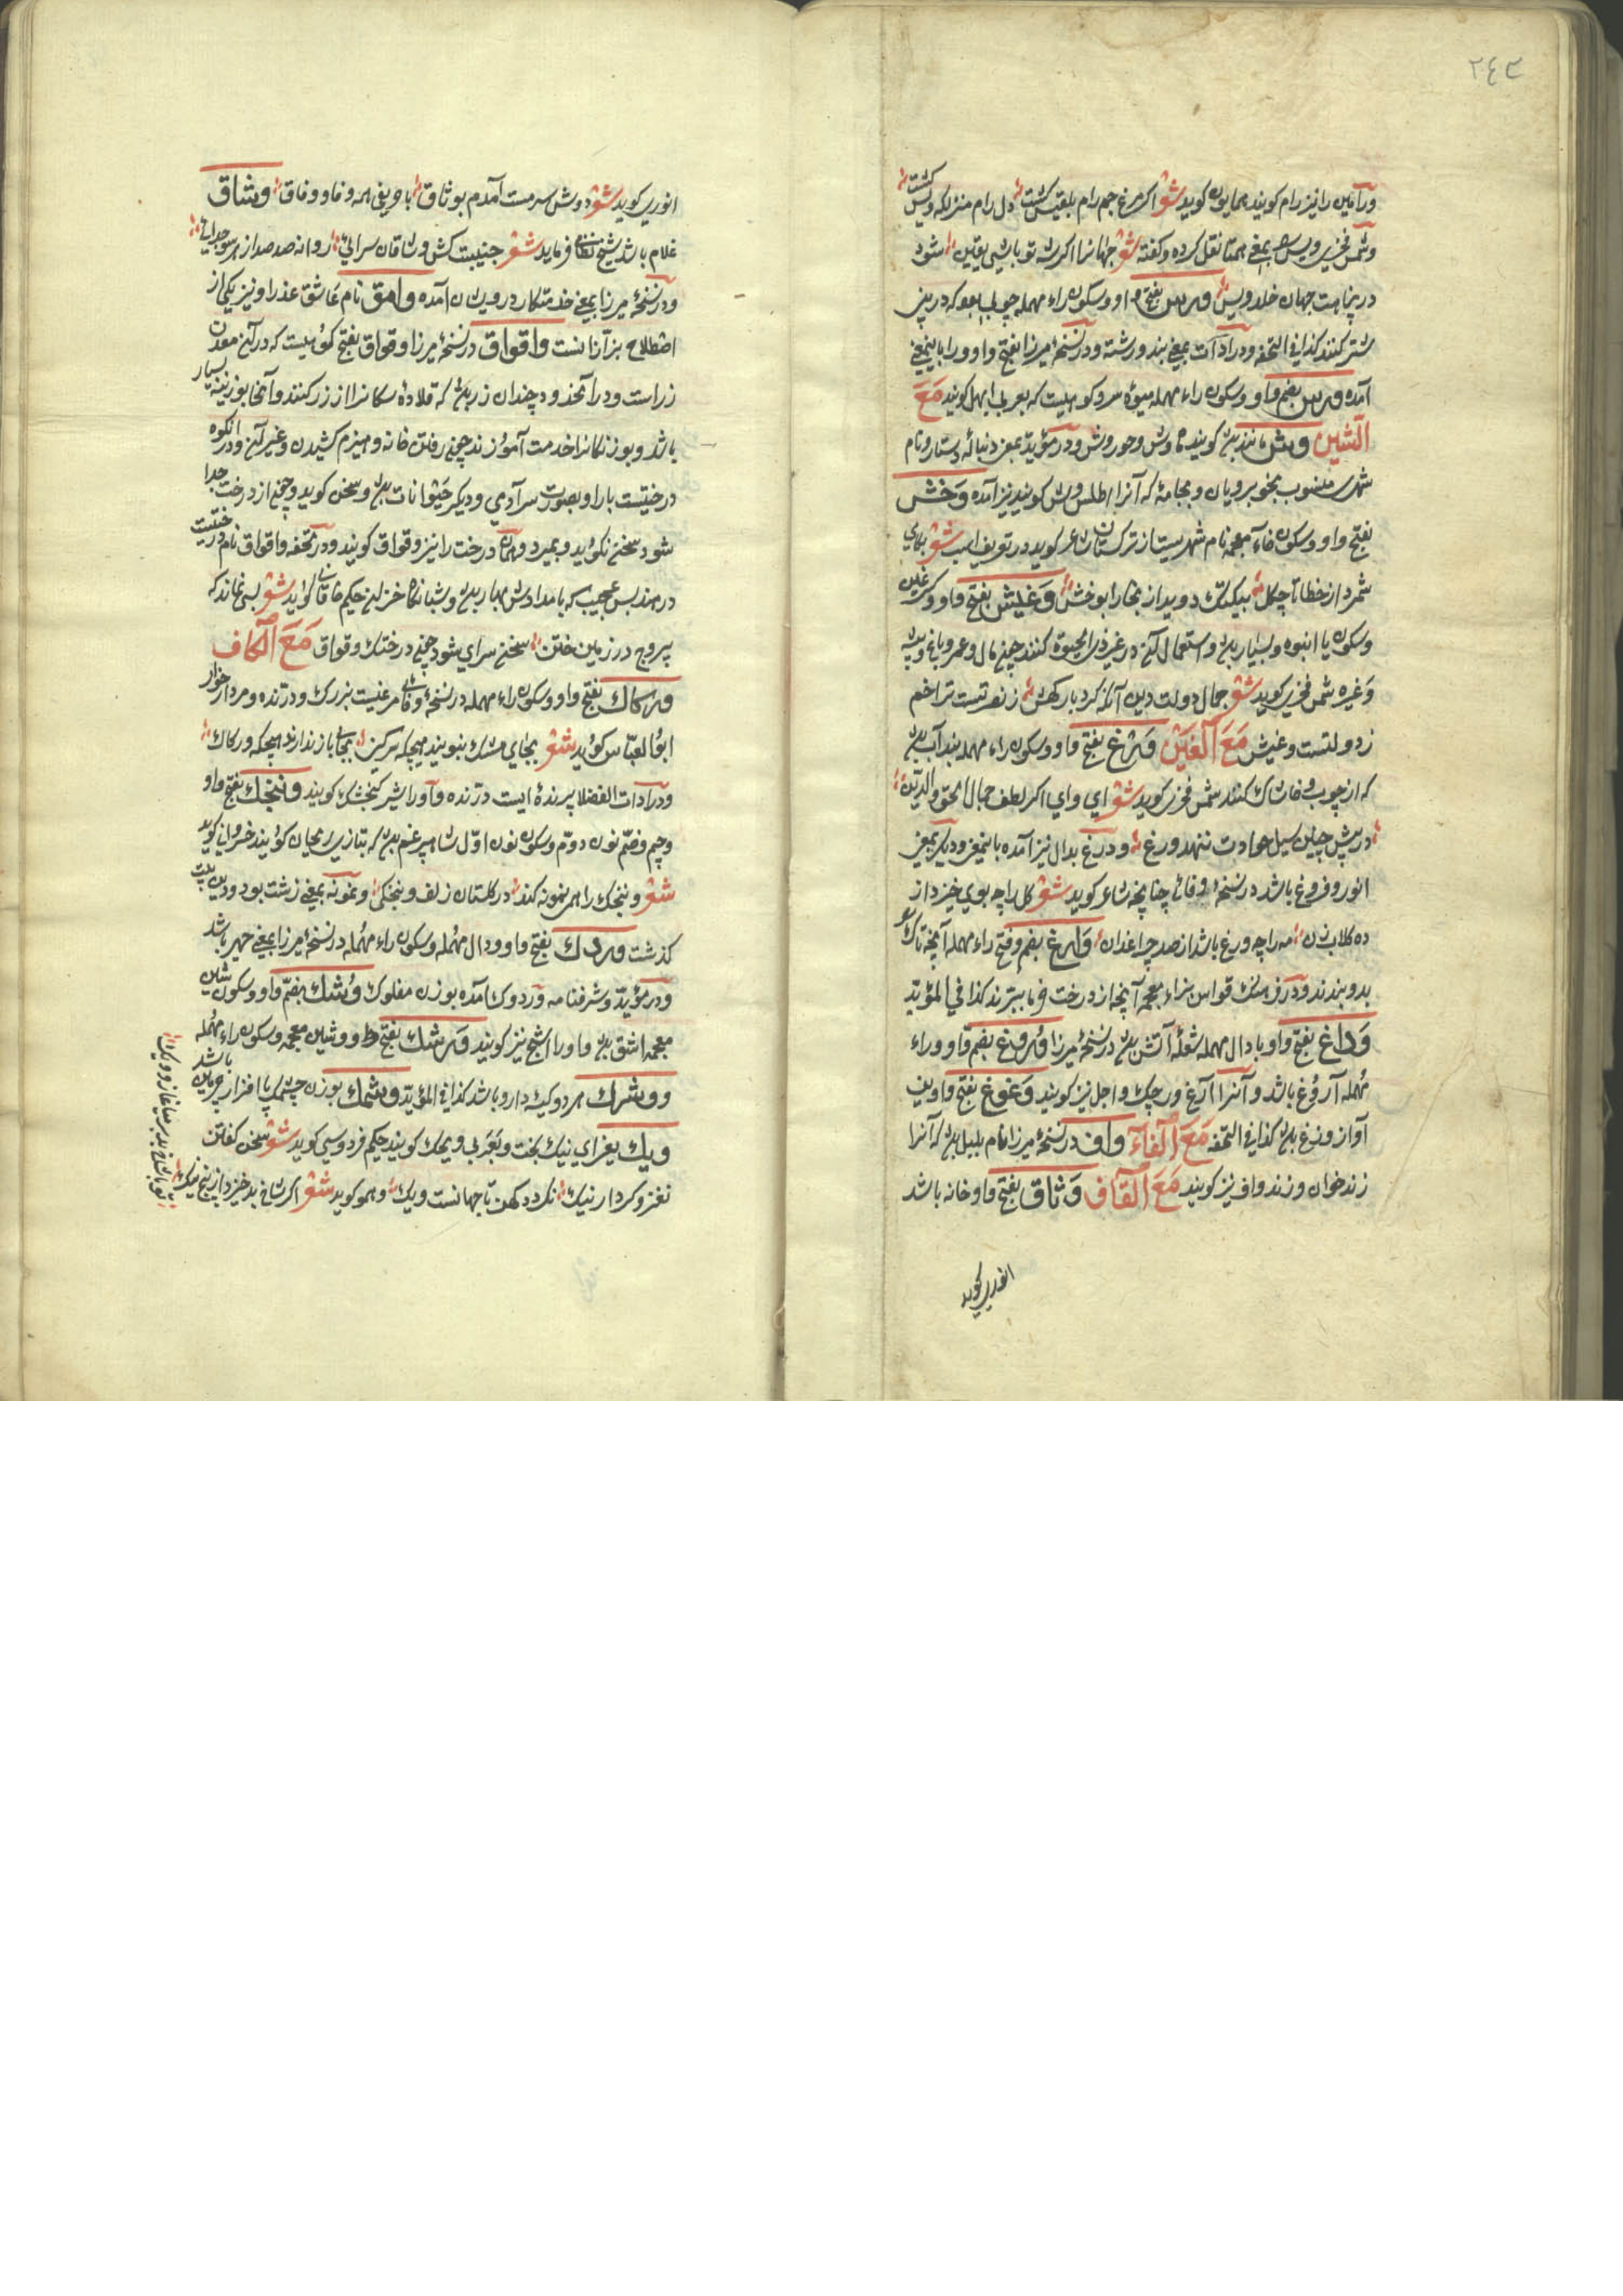 ٢٤٣
ورامین را نیز رام کویند همایون کوید شعر اکر مرغ جم رام بلقیس کشت دل رام منزلکه ویس کشت
وشمس فخری ویس بمعنی همتا نقل کرده وکفته شعر جهانرا اکرشه تو باشی یقین شود
در پناهت جهان خلد ویس ورس بفتح واو وسکون راء مهمله چوبی بود که در بینی
شتر کنند کذا فی التحفه ودر ادات بمعنی بند ورشته ودر نسخۀ میرزا بفتح واو ورا باینمعنی
آمده ورس بضم واو وسکون راء مهمله میوۀ سرو کوهیست که بعربی ابهل کویند مَعَ
الشین وش مانند بود کویند ماه وش وحور وش ودر مؤید بمعنی دنبالۀ دستار ونام
شهری منسوب بخوبرویان وبجامۀ که آنرا اطلس وش کویند نیز آمده وَخش
بفتح واو وسکون خاء معجمه نام شهریست از ترکستان شاعر کوید در تعریف اسب شعر
شمرد از خطا تا چکل بیکتک دوید از بخارا بوخش وَغیش بفتح واو وکسر غین
وسکون یا انبوه وبسیار بود واستعمال آن در غیر ذی الحیوة کنند چون مال وعمر وباغ وبیشه
وغیره شمس فخری کوید شعر جمال دولت ودین آنکه کردبار کهش ز نعر تست تراخم
ز دولتست وغیش مَعَ الغَین ورغ بفتح واو وسکون راء مهمله بند آب بود
که از چوب وخاشاک کنند شمس فخری کوید شعر ای وای اکر لطف جمال الحق والدین
در پیش چنین سیل حوادث ننهد ورغ ودرغ بدال نیز آمده باینمعنی ودیکر بمعنی
انور وفروغ باشد در نسخۀ وفائی چنانچه شاعر کوید شعر کل را چه بوی خیزد از
ده کلاب زن مه را چه ورغ باشد از صد چراغدان وارغ بضم وفتح راء مهمله آنچه تاک
بدو بندند ودر فرهنک قواس بزاء معجمه آنچه از درخت خرما ببرند کذا فی المؤید
وَداغ بفتح واو بادال مهمله شعلۀ آتش بود در نسخۀ میرزا وُروغ بضم واو وراء
مهمله آروغ باشد وآنرا آرغ ورجک واجل نیز کویند وَغوغ بفتح واوین
آواز وزغ بود کذا فی التحفه مَعَ الفاء واف در نسخۀ میرزا نام بلبل بود که آنرا
زندخوان وزندواف نیز کویند مَعَ القاف وَثاق بفتح واو خانه باشد
انوری کوید
انوری کوید شعر دوش سرمست آمدم بوثاق با حریفی همه وفا ووفاق وشاق
غلام باشد شیخ نظامی فرماید شعر جنیبت کش وشاقان سرائی روانه صد صد از هر سو جدایی
ودر نسخۀ میرزا بمعنی خدمتکار درویشان آمده وامق نام عاشق عذرا ونیز یکی از
اصطلاح بزازانست واقواق در نسخۀ میرزا وقواق بفتح کوهیست که در آن معدن
زراست ودر آنحدود چندان زر بود که قلادۀ سکانرا از زر کنند وآنجا بوزینه بسیار
باشد وبوزنکانرا خدمت آموزند چون رفتن خانه وهیزم کشیدن وغیر آن ودر انکوه
درختیست بار او بصورت سر آدمی ودیکر حیوانات بود وسخن کوید وچون از درخت جدا
شود سخن نکوید وبمیرد وهمان درخت را نیز وقواق کویند ودر تحفه واقواق نام درختیست
در هند بس عجیب که بامدادش بهار بود وشبانکاه خزان حکیم خاقانی کوید شعر بسی نماند که
بیروح در زمین ختن سخن سرای شود چون درختک وقواق مَعَ الکاف
ورکاک بفتح واو وسکون راء مهمله در نسخۀ وفائی مرغیست بزرک ودرنده ومردارخوار
ابو العباس کوید شعر بجای مشک نبویند هیچکه سرکین بجای باز ندارند هیچکه ورکاک
ودر ادات الفضلا پرندۀ ایست درنده واورا شیر کنجشک کویند ونجنک بفتح واو
وجیم وضم نون دوم وسکون نون اول شاه سپرغم بود که بتازی ریحان کویند خسروانی کوید
شعر ونجنک را همی نمونه کند در کلستان زلف ونجنکی ونمونه بمعنی زشت بود ودر بیت
کذشت وردک بفتح واو ودال مهمله وسکون راء مهمله در نسخۀ میرزا بمعنی جهیز باشد
ودر مؤید وشرفنامه وردوک آمده بوزن مفلوک وُشک بضم واو وسکون شین
معجمه اشق بود واورا اشج نیز کویند ورشک بفتح واو وشین معجمه وسکون راء مهمله
ووشرک هر دو کیسۀ دارو باشد کذا فی المؤید وشمک بوزن چشمک پا افزار چرمین باشد
ویک یعنی ای نیک بخت وبعربی ویحک کویند حکیم فردوسی کوید شعر سخن کفتن
نغز وکردار نیک نکردد کهن تا جهانست ویک وهمو کوید شعر اکر شاخ بد خیزد از بیخ نیک
تو با شاخ بد بر میاغاز ویک